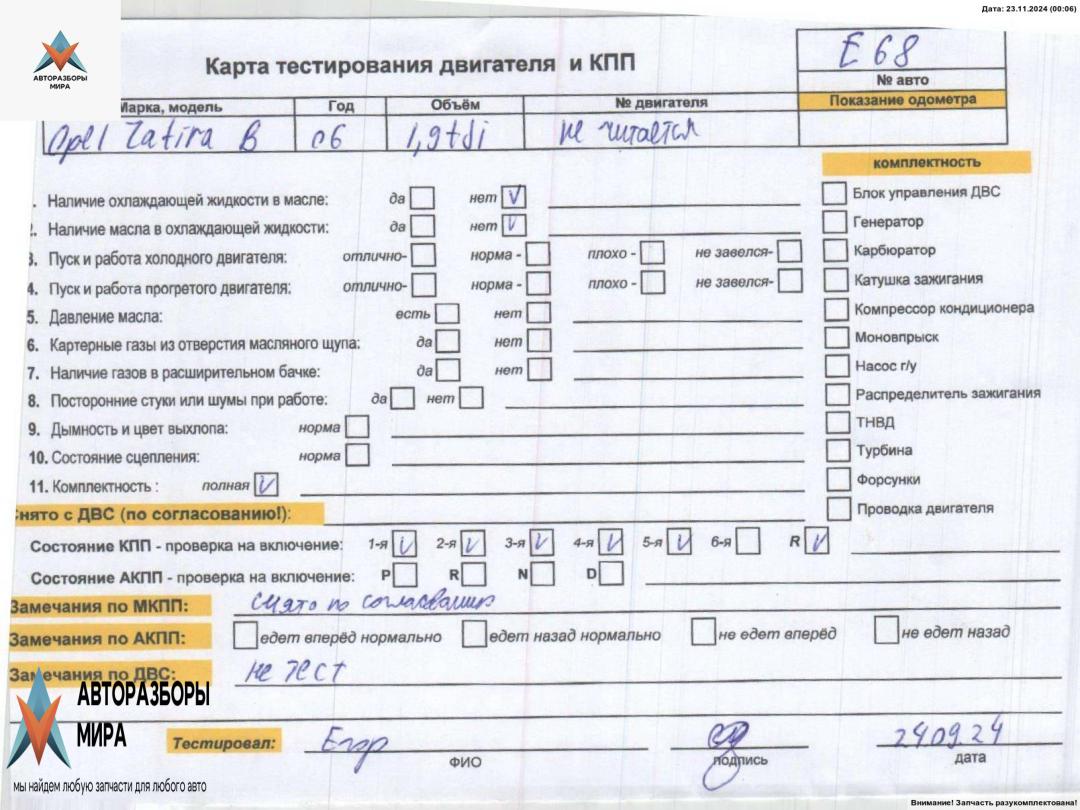 Дата: 23.11.2024 (00:06)
АВТОРАЗБОРЫ
МИРА
Карта тестирования двигателя и КПП
E 68
№ авто
Марка, модель Год Объём № двигателя Показание одометра
Opel Zafira B 06 1,9tdi не читается
комплектность
1. Наличие охлаждающей жидкости в масле: да нет V
2. Наличие масла в охлаждающей жидкости: да нет V
3. Пуск и работа холодного двигателя: отлично- норма - плохо - не завелся-
4. Пуск и работа прогретого двигателя: отлично- норма - плохо - не завелся-
5. Давление масла: есть нет
6. Картерные газы из отверстия масляного щупа: да нет
7. Наличие газов в расширительном бачке: да нет
8. Посторонние стуки или шумы при работе: да нет
9. Дымность и цвет выхлопа: норма
10. Состояние сцепления: норма
11. Комплектность : полная V
Блок управления ДВС
Генератор
Карбюратор
Катушка зажигания
Компрессор кондиционера
Моновпрыск
Насос г/у
Распределитель зажигания
ТНВД
Турбина
Форсунки
Проводка двигателя
Снято с ДВС (по согласованию!):
Состояние КПП - проверка на включение: 1-я V 2-я V 3-я V 4-я V 5-я V 6-я R V
Состояние АКПП - проверка на включение: P R N D
Замечания по МКПП: снято по согласованию
Замечания по АКПП: едет вперёд нормально едет назад нормально не едет вперёд не едет назад
Замечания по ДВС: не тест
АВТОРАЗБОРЫ
МИРА
мы найдем любую запчасти для любого авто
Тестировал: Егор 24.09.24
ФИО подпись дата
Внимание! Запчасть разукомплектована!